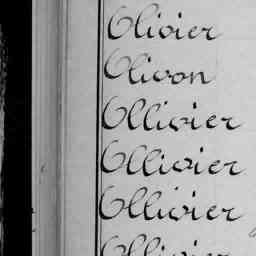 Olivier
Olivon
Ollivier
Ollivier
Ollivier
Ollivier